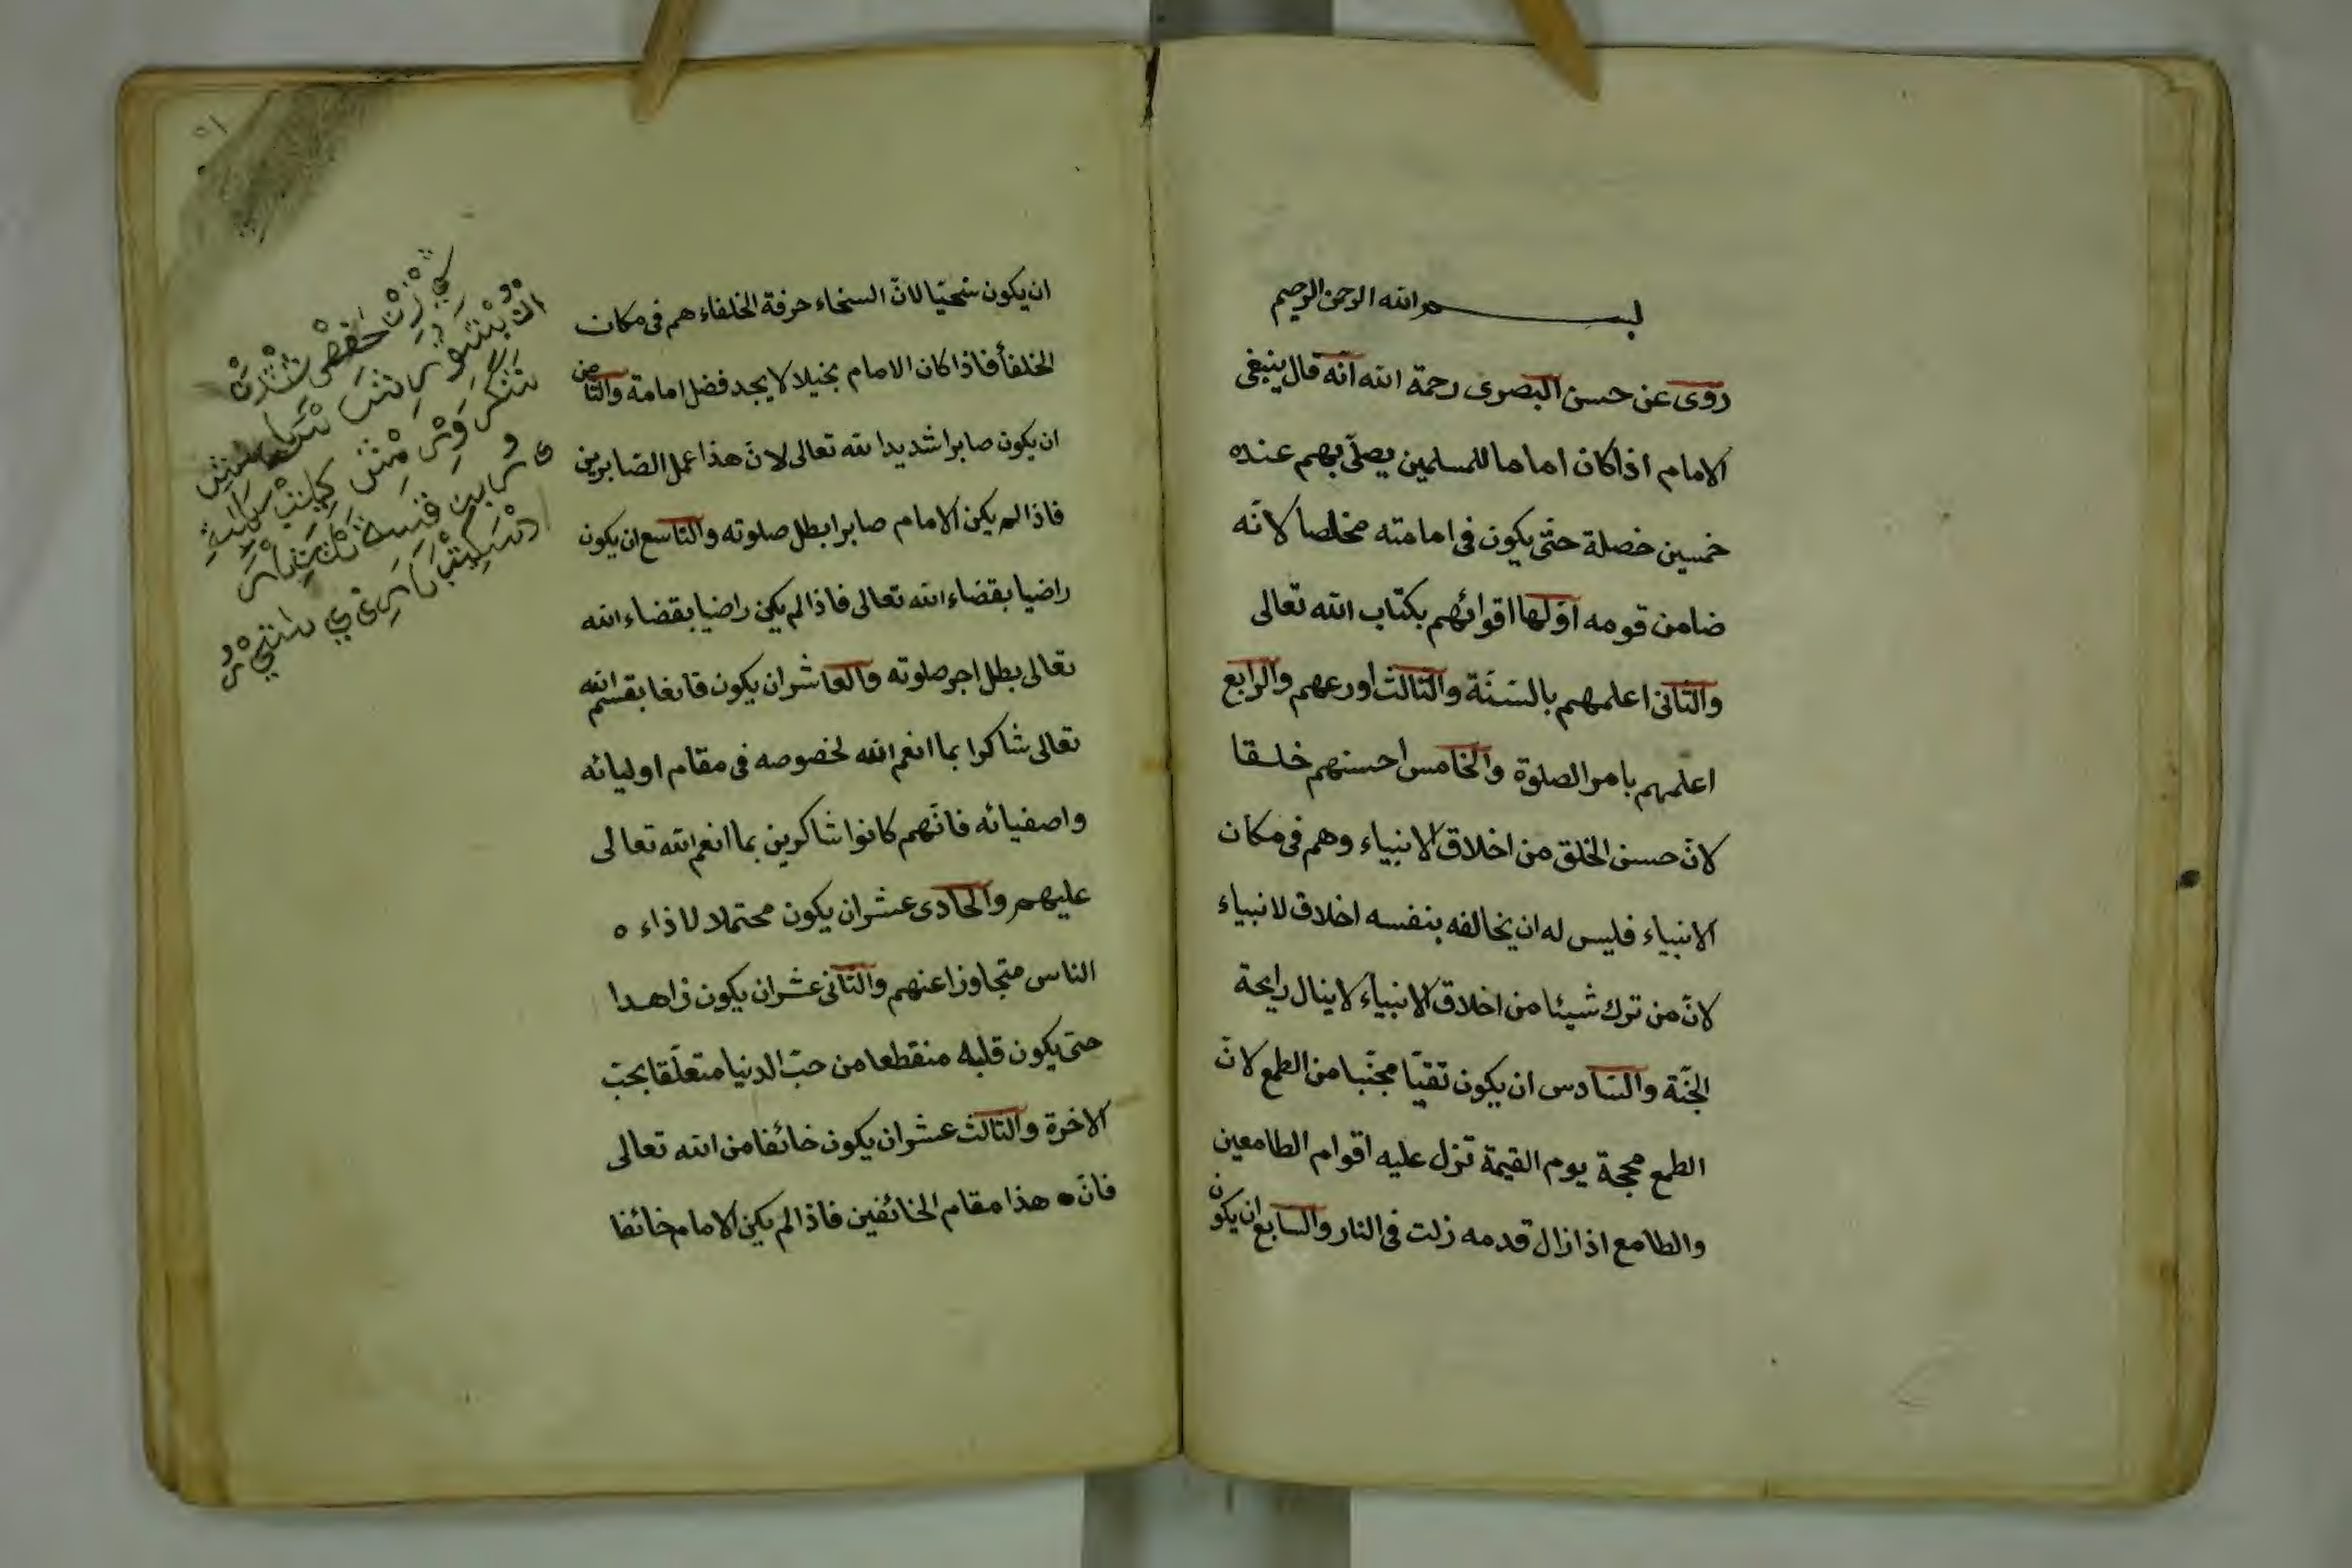 بسم الله الرحمن الرحيم
روى عن حسن البصرى رحمة الله انّه قال ينبغى
الامام اذا كان اماما للمسلمين يصلّى بهم عنده
خمسين خصلة حتّى يكون فى امامته مخلصا لانّه
ضامن قومه اوّلها اقوائهم بكتاب الله تعالى
والثانى اعلمهم بالسّنّة والثالث اورعهم والرابع
اعلمهم بامر الصلوة والخامس احسنهم خلقا
لانّ حسن الخلق من اخلاق الانبياء وهم فى مكان
الانبياء فليس له ان يخالفه بنفسه اخلاق لانبياء
لانّ من ترك شيئا من اخلاق الانبياء لاينال رايحة
الجنّة والسّادس ان يكون تقيّا مجنّبا من الطمع لانّ
الطمع محجة يوم القيمة تزل عليه اقوام الطامعين
والطامع اذا زال قدمه زلت فى النار والسابع ان يكون
ان يكون سخيّا لانّ السخاء حرفة الخلفاء هم فى مكان
الخلفأ فاذا كان الامام بخيلا لا يجد فضل امامة والثامن
ان يكون صابرا شديدا لله تعالى لانّ هذا عمل الصّابرين
فاذا لم يكن الامام صابرا بطل صلوته والتاسع ان يكون
راضيا بقضاء الله تعالى فاذا لم يكن راضيا بقضاء الله
تعالى بطل اجر صلوته والعاشر ان يكون قانعا بقسم الله
تعالى شاكرا بما انعم الله لخصوصه فى مقام اوليائه
واصفيائه فانّهم كانوا شاكرين بما انعم الله تعالى
عليهم والحادى عشر ان يكون محتملا لاذاء ه
الناس متجاوزا عنهم والثانى عشر ان يكون زاهدا
حتى يكون قلبه منقطعا من حبّ الدنيا متعلّقا بحبّ
الاخرة والثالث عشر ان يكون خائفا من الله تعالى
فانّ هذا مقام الخائفين فاذا لم يكن الامام خائفا